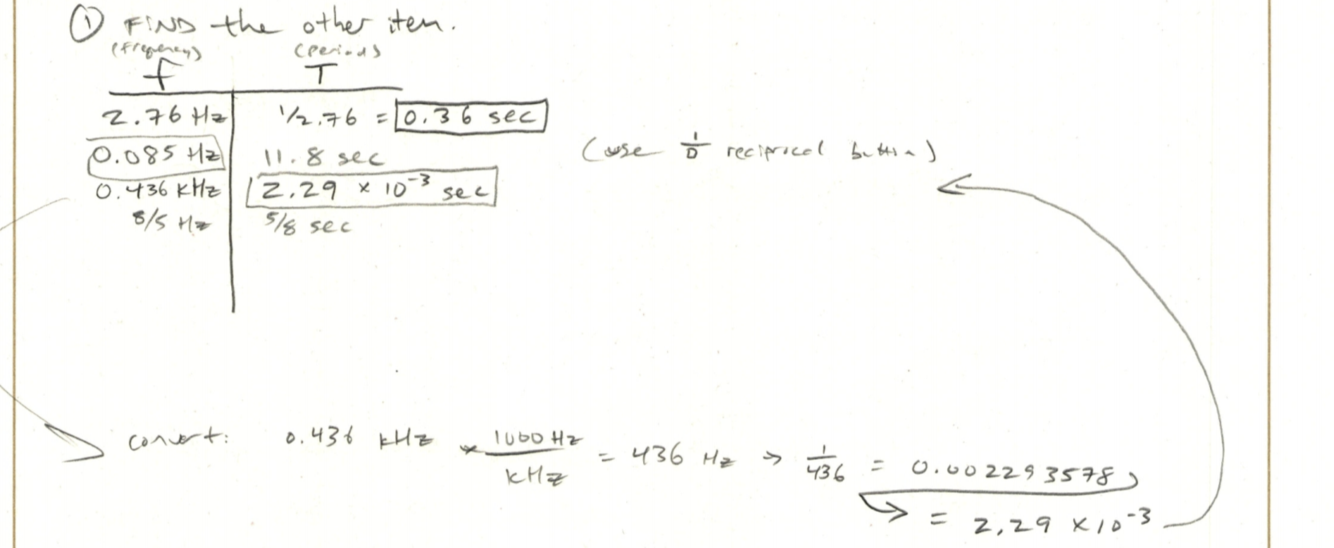 ① FIND the other item.
(frequency) (period)
f T
2.76 Hz 1/2.76 = 0.36 sec
0.085 Hz 11.8 sec
(use 1/□ reciprocal button)
0.436 kHz 2.29 × 10⁻³ sec
8/5 Hz 5/8 sec
convert: 0.436 kHz × 1000 Hz/kHz = 436 Hz → 1/436 = 0.002293578
= 2.29 × 10⁻³